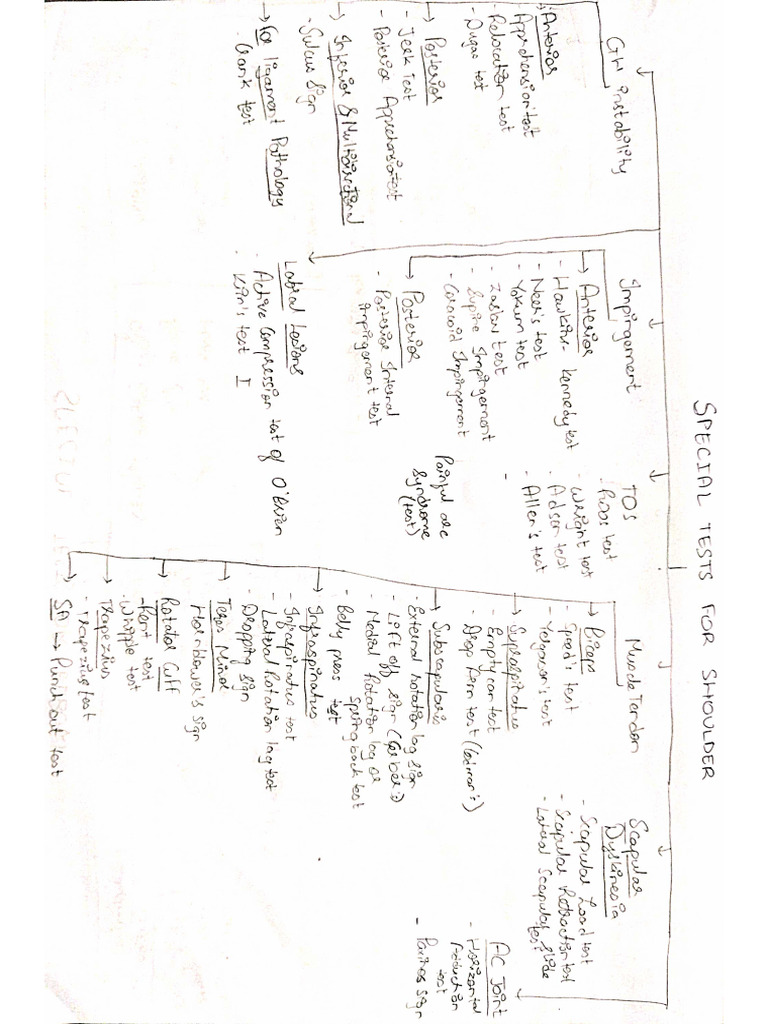 SPECIAL TESTS FOR SHOULDER
GH instability
Anterior
- Apprehension test
- Relocation test
- Dugas test
Posterior
- Jerk Test
- Posterior Apprehension test
Inferior & Multidirectional
- Sulcus Sign
For ligament Pathology
- Crank test
Impingement
Anterior
- Hawkins-Kennedy test
- Neer's test
- Yokum test
- Zaslav test
- Supine Impingement
- Coracoid Impingement
Posterior
- Posterior Internal
impingement test
Labral Lesions
- Active Compression test of O'Brien
- Kim's test I
TOS
- Roos test
- Wright test
- Adson test
- Allen's test
-
Painful arc
Syndrome
(test)
Muscle Tendon
Biceps
- Speed's test
- Yergason's test
Supraspinatus
- Empty can test
- Drop Arm test (Codman's)
Subscapularis
- External Rotation lag sign
- Lift off sign (Gerber's)
- Medial Rotation lag or
spring back test
- Belly press test
Infraspinatus
- Infraspinatus test
- Lateral Rotation lag test
- Dropping sign
Teres Minor
- Hornblower's sign
Rotator Cuff
- Rent test
- Whipple test
Trapezius
- Trapezius test
SA → Punch out test
Scapular
Dyskinesia
- Scapular Load test
- Scapular Retraction test
- Lateral Scapular slide
test
AC Joint
- Horizontal
Adduction
test
- Paxinos sign